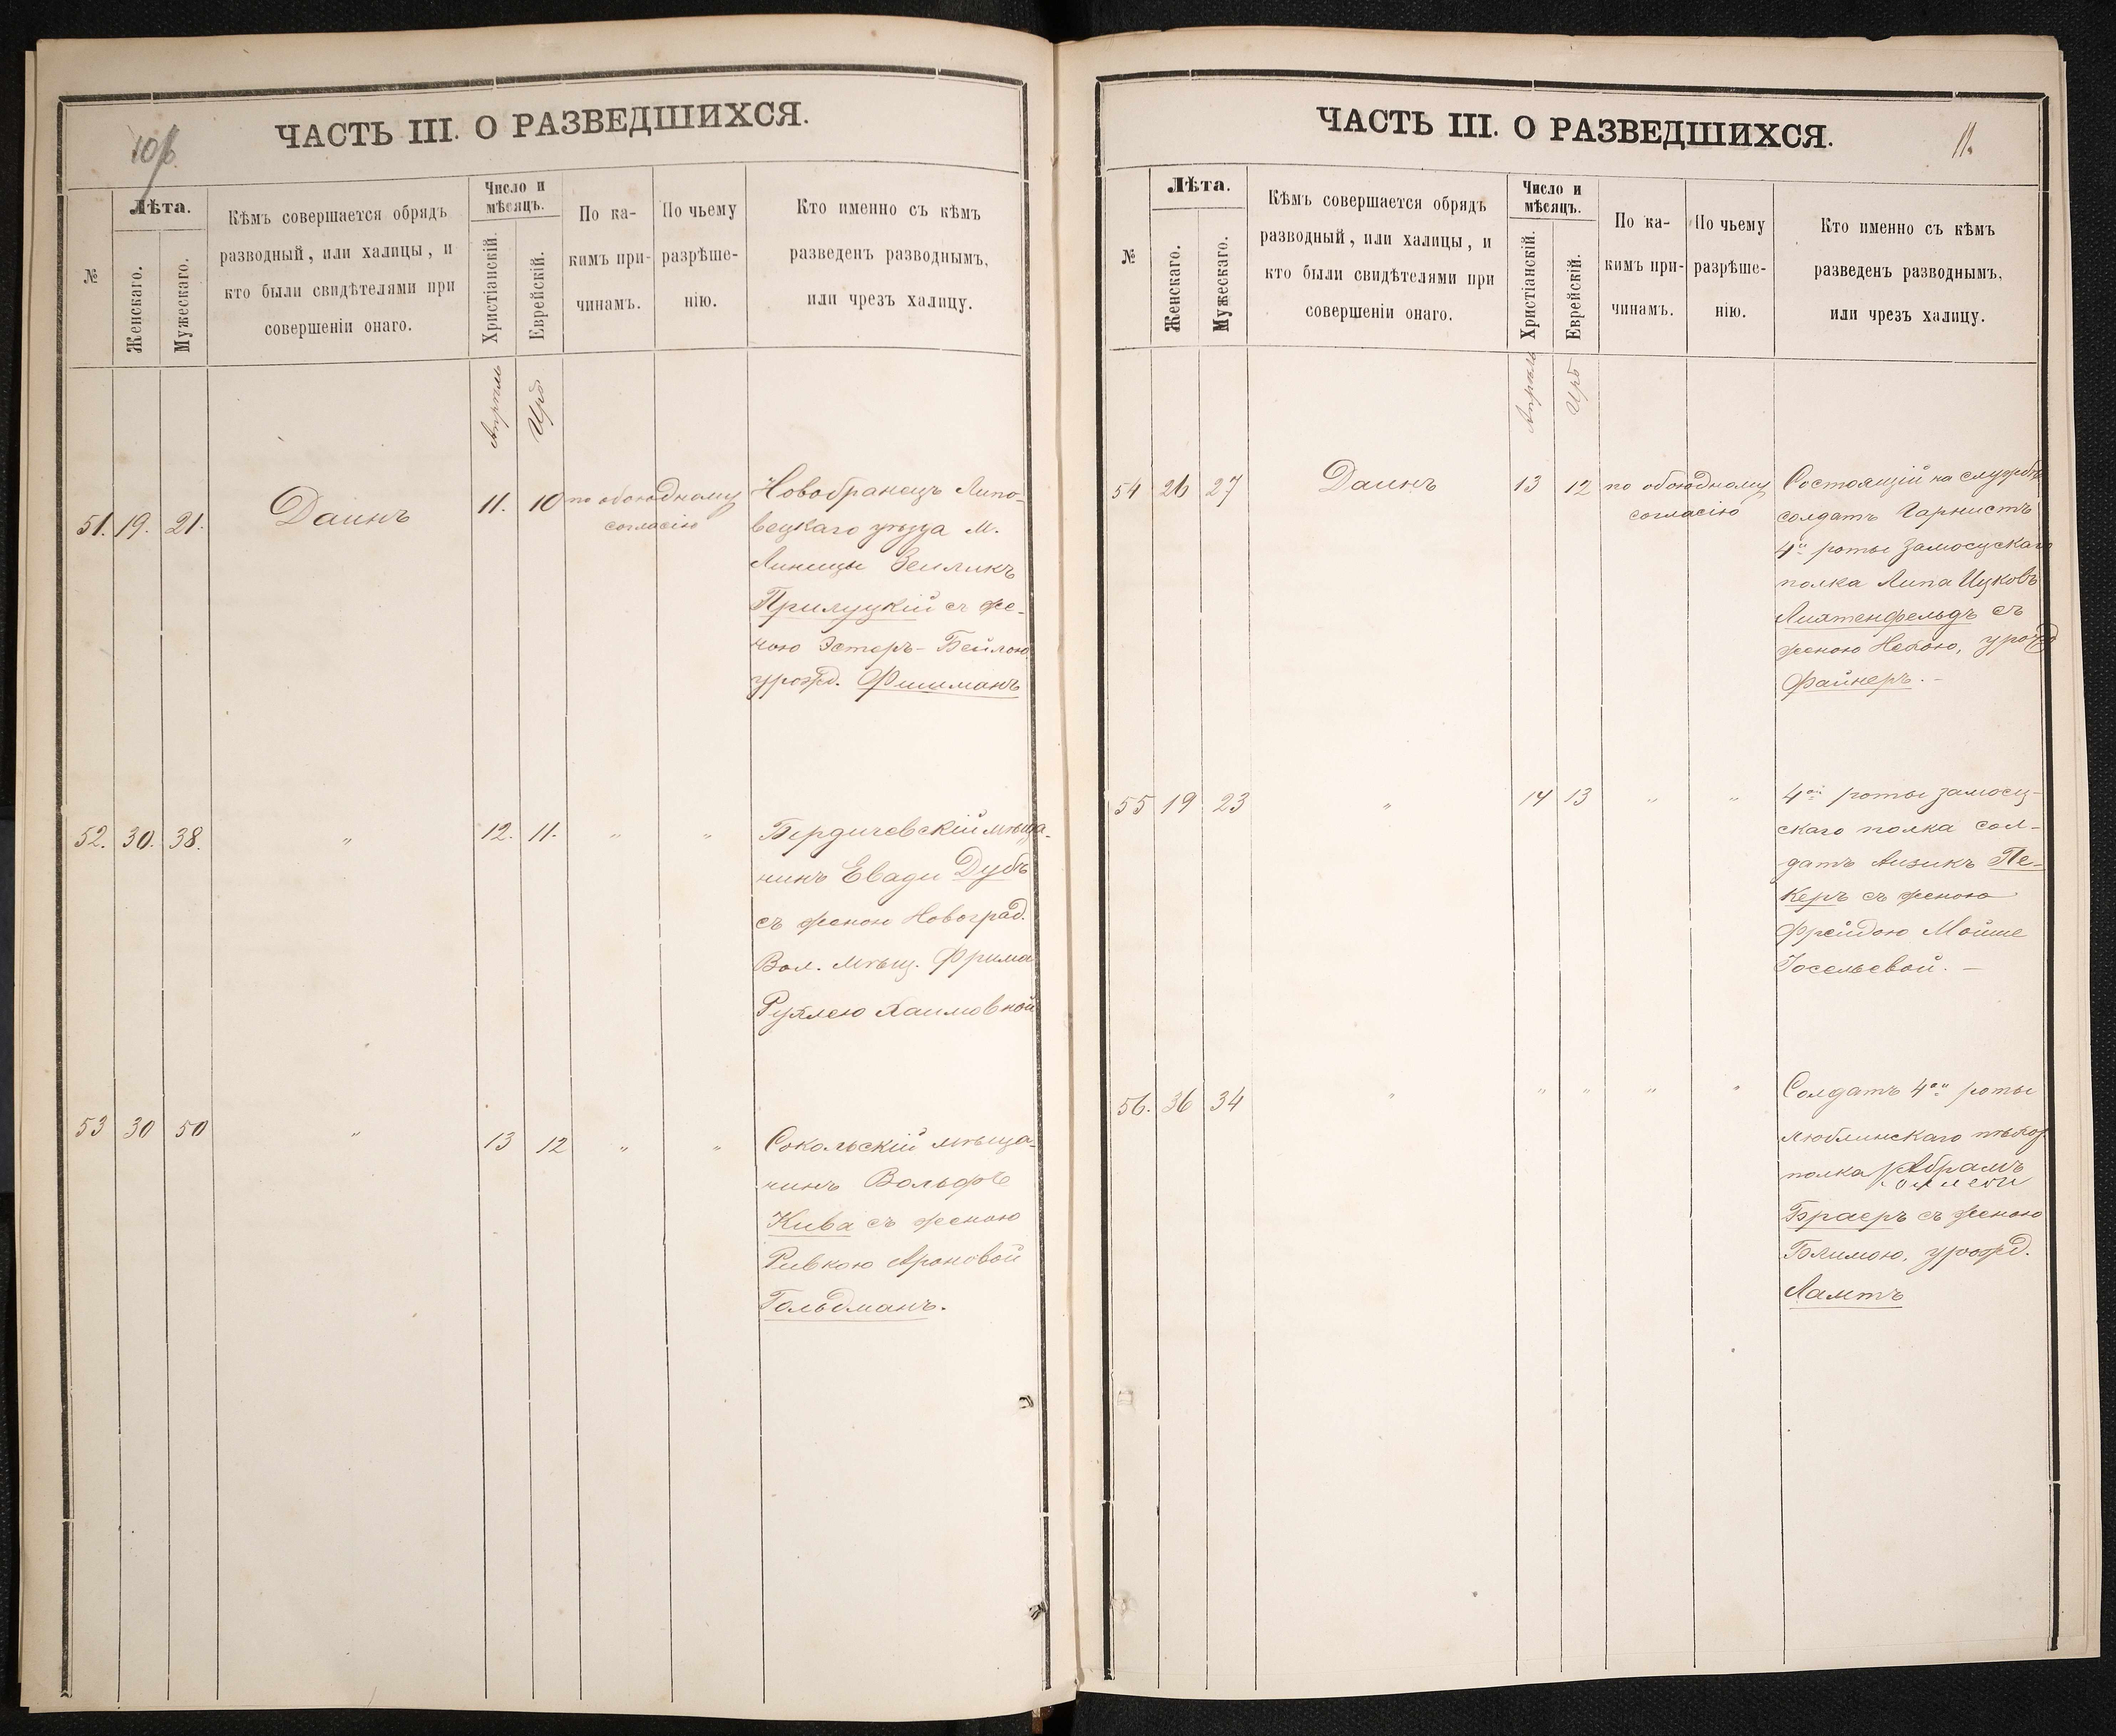 10/б.
ЧАСТЬ III. О РАЗВЕДШИХСЯ.
№
Лѣта.
Женскаго.
Мужескаго.
Кѣмъ совершается обрядъ
разводный, или халицы, и
кто были свидѣтелями при
совершеніи онаго.
Число и
мѣсяцъ.
Христіанскій.
Еврейскій.
По ка-
кимъ при-
чинамъ.
По чьему
разрѣше-
нію.
Кто именно съ кѣмъ
разведенъ разводнымъ,
или чрезъ халицу.
Апрѣль
Иръ
51. 19. 21. Даинъ 11. 10 по обоюдному
согласію
Новобранецъ Липо-
вецкаго уѣзда М.
Линицы Зейликъ
Прилуцкій съ же-
ною Эстеръ-Бейлою
урожд. Фишманъ
52. 30. 38. " 12. 11. " "
Бердичевскій мѣща-
нинъ Евади Дубъ
съ женою Новоград.
Вол. мѣщ. Фрима
Рухлею Хаимовной
53 30 50 " 13 12 " "
Сокольскій мѣща-
нинъ Вольфъ
Кива съ женою
Ривкою Ароновой
Гольдманъ.
ЧАСТЬ III. О РАЗВЕДШИХСЯ.
11.
№
Лѣта.
Женскаго.
Мужескаго.
Кѣмъ совершается обрядъ
разводный, или халицы, и
кто были свидѣтелями при
совершеніи онаго.
Число и
мѣсяцъ.
Христіанскій.
Еврейскій.
По ка-
кимъ при-
чинамъ.
По чьему
разрѣше-
нію.
Кто именно съ кѣмъ
разведенъ разводнымъ,
или чрезъ халицу.
Апрѣль
Иръ
54 26 27 Даинъ 13 12 по обоюдному
согласію
Состоящій на службѣ
солдатъ Гарнистъ
4й роты Замосцскаго
полка Липа Ицковъ
Лихтенфельдъ съ
женою Нехою, урожд
Файнеръ.-
55 19 23 " 14 13 " "
4ой роты замосц-
скаго полка сол-
датъ Айзикъ Пе-
керъ съ женою
Фрейдою Мойше
Іосельевой. -
56. 36 34 " " " " "
Солдатъ 4ой роты
Люблинскаго пѣхот.
полка Абрамъ
Браеръ съ женою
Блимою, урожд.
Ламтъ